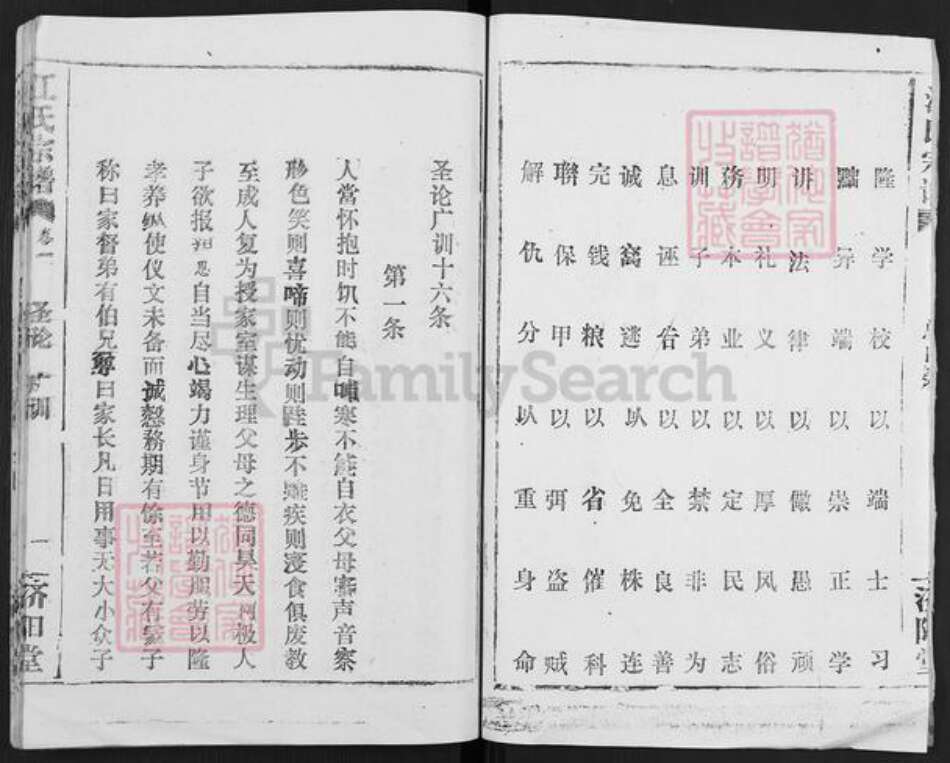 隆学校以端士习
黜异端以崇正学
讲法律以儆愚顽
明礼义以厚风俗
務本业以定民志
训子弟以禁非为
息诬告以全良善
诚窩逃以免株连
完钱粮以省催科
聯保甲以弭盗贼
解仇分以重身命
圣论广训十六条
第一条
人當怀抱时饥不能自哺寒不能自衣父母審声音察
形色笑则喜啼则忧动则跬步不離疾则寝食俱废教
至成人复为授家室谋生理父母之德同昊天罔极人
子欲报 恩自当尽心竭力谨身节用以勤服劳以隆
孝养纵使仪文未备而诚慤務期有馀至若父有冢子
称曰家督弟有伯兄尊曰家长凡日用事无大小众子
江氏宗譜
卷一
圣论广训
一
济阳堂
FamilySearch